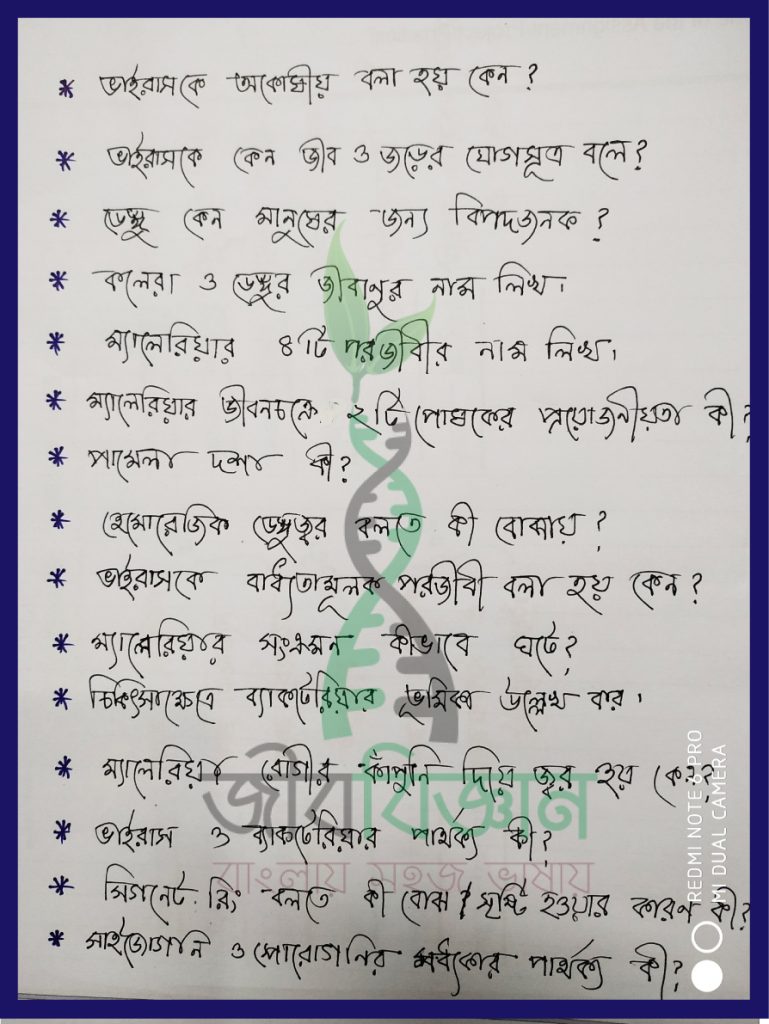 * ভাইরাসকে অকোষীয় বলা হয় কেন?
* ভাইরাসকে কেন জীব ও জড়ের যোগসূত্র বলে?
* ডেঙ্গু কেন মানুষের জন্য বিপদজনক?
* কলেরা ও ডেঙ্গুর জীবাণুর নাম লিখ।
* ম্যালেরিয়ার ৪টি পরজীবীর নাম লিখ।
* ম্যালেরিয়ার জীবনচক্রে ২টি পোষকের প্রয়োজনীয়তা কী?
* পামেলা দশা কী?
* হেমোরেজিক ডেঙ্গুজ্বর বলতে কী বোঝায়?
* ভাইরাসকে বাধ্যতামূলক পরজীবী বলা হয় কেন?
* ম্যালেরিয়ার সংক্রমন কীভাবে ঘটে?
* চিকিৎসাক্ষেত্রে ব্যাকটেরিয়ার ভূমিকা উল্লেখ কর।
* ম্যালেরিয়া রোগীর কাঁপুনি দিয়ে জ্বর হয় কেন?
জীববিজ্ঞান
* ভাইরাস ও ব্যাকটেরিয়ার পার্থক্য কী?
বাংলায় সহজ ভাষায়
* সিগনেট রিং বলতে কী বোঝ? সৃষ্টি হওয়ার কারণ কী?
* সাইজোগনি ও স্পোরোগনির মধ্যকার পার্থক্য কী?
REDMI NOTE 6 PRO
MI DUAL CAMERA